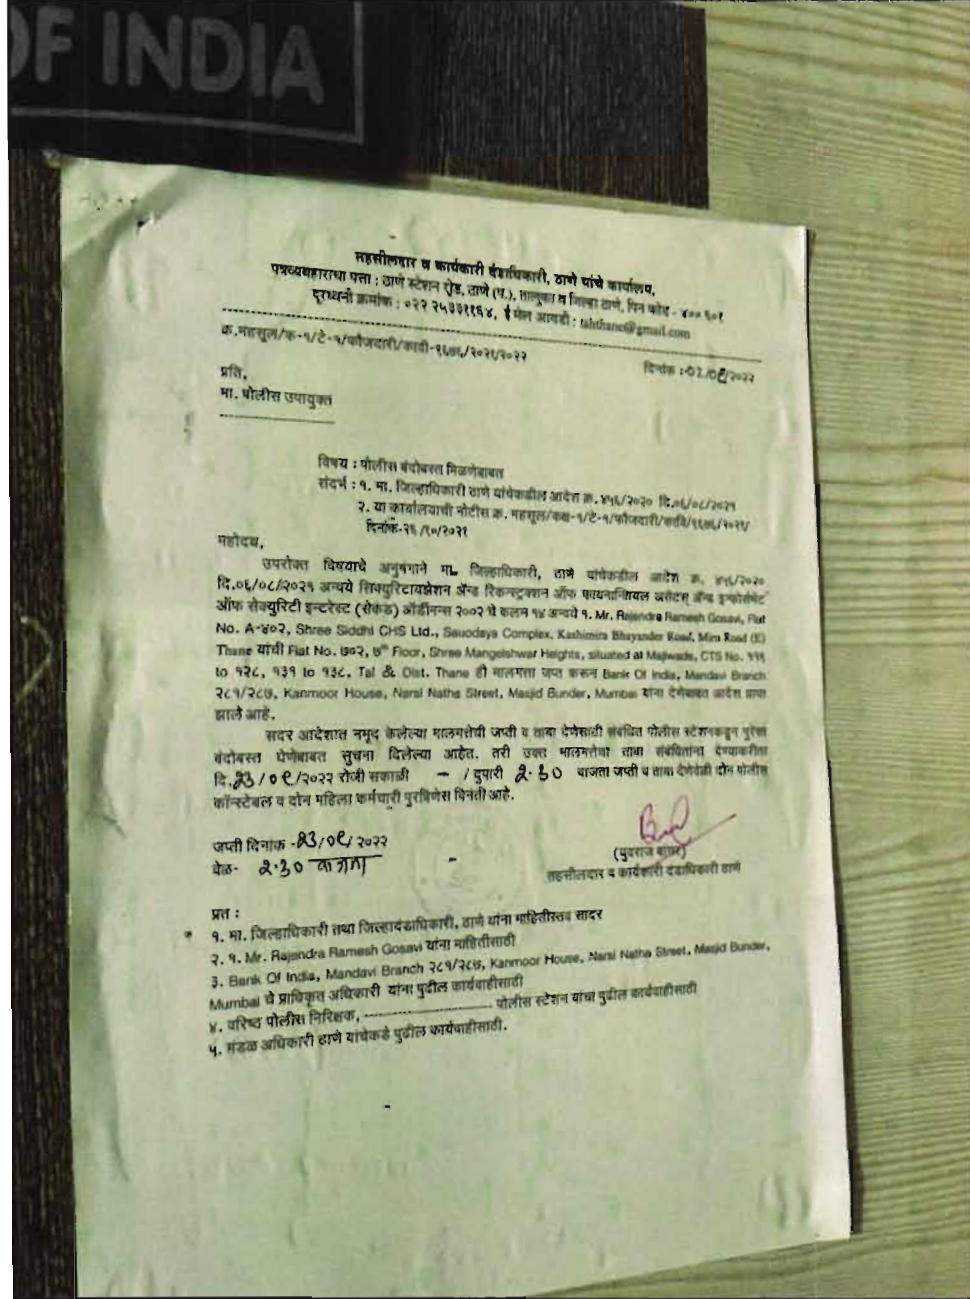 OF INDIA
तहसीलदार व कार्यकारी दंडाधिकारी, ठाणे यांचे कार्यालय,
पत्रव्यवहाराचा पत्ता : ठाणे स्टेशन रोड, ठाणे (प.), तालुका व जिल्हा ठाणे, पिन कोड - ४०० ६०१
दूरध्वनी क्रमांक : ०२२ २५३३११६४, ई मेल आयडी : tahthane@gmail.com
क्र.महसूल/क-१/टे-१/फौजदारी/कावी-१६७६/२०२१/२०२२
दिनांक :-02/0९/२०२२
प्रति,
मा. पोलीस उपायुक्त
विषय : पोलीस बंदोबस्त मिळणेबाबत
संदर्भ : १. मा. जिल्हाधिकारी ठाणे यांचेकडील आदेश क्र. ४५६/२०२० दि.०६/०८/२०२१
२. या कार्यालयाची नोटीस क्र. महसूल/कक्ष-१/टे-१/फौजदारी/कावि/१६७६/२०२१/
दिनांक-२६/१०/२०२१
महोदय,
उपरोक्त विषयाचे अनुषगाने मा. जिल्हाधिकारी, ठाणे यांचेकडील आदेश क्र. ४५६/२०२०
दि.०६/०८/२०२१ अन्वये सिक्युरिटायझेशन ॲन्ड रिकन्स्ट्रक्शन ऑफ फायनान्शियल असेटस् ॲन्ड इन्फोर्समेंट
ऑफ सेक्युरिटी इन्टरेस्ट (सेकंड) ऑर्डीनन्स २००२ चे कलम १४ अन्वये १. Mr. Rajendra Ramesh Gosavi, Flat
No. A-४०२, Shree Siddhi CHS Ltd., Sauodaya Complex, Kashimira Bhayander Road, Mira Road (E)
Thane यांची Flat No. ७०२, ७th Floor, Shree Mangeshwar Heights, situated at Majiwade, CTS No. ११६
to १२८, १३१ to १३८, Tal & Dist. Thane ही मालमत्ता जप्त करून Bank Of India, Mandavi Branch
२८१/२८७, Kanmoor House, Narsi Natha Street, Masjid Bunder, Mumbai यांना देणेबाबत आदेश प्राप्त
झाले आहे.
सदर आदेशात नमूद केलेल्या मालमत्तेची जप्ती व ताबा देणेसाठी संबंधित पोलीस स्टेशनकडून पुरेसा
बंदोबस्त घेणेबाबत सुचना दिलेल्या आहेत. तरी उक्त मालमत्तेचा ताबा संबधितांना देण्याकरीता
दि.23/0९/२०२२ रोजी सकाळी - / दुपारी २.३० वाजता जप्ती व ताबा देणेवेळी दोन पोलीस
कॉन्स्टेबल व दोन महिला कर्मचारी पुरविणेस विनंती आहे.
जप्ती दिनांक -23/0९/२०२२
वेळ- २.३० वाजता
(युवराज बांगर)
तहसीलदार व कार्यकारी दंडाधिकारी ठाणे
प्रत :
१. मा. जिल्हाधिकारी तथा जिल्हादंडाधिकारी, ठाणे यांना माहितीस्तव सादर
२. १. Mr. Rajendra Ramesh Gosavi यांना माहितीसाठी
३. Bank Of India, Mandavi Branch २८१/२८७, Kanmoor House, Narsi Natha Street, Masjid Bunder,
Mumbai चे प्राधिकृत अधिकारी यांना पुढील कार्यवाहीसाठी
४. वरिष्ठ पोलीस निरिक्षक, ---------------- पोलीस स्टेशन यांचा पुढील कार्यवाहीसाठी
५. मंडळ अधिकारी ठाणे यांचेकडे पुढील कार्यवाहीसाठी.